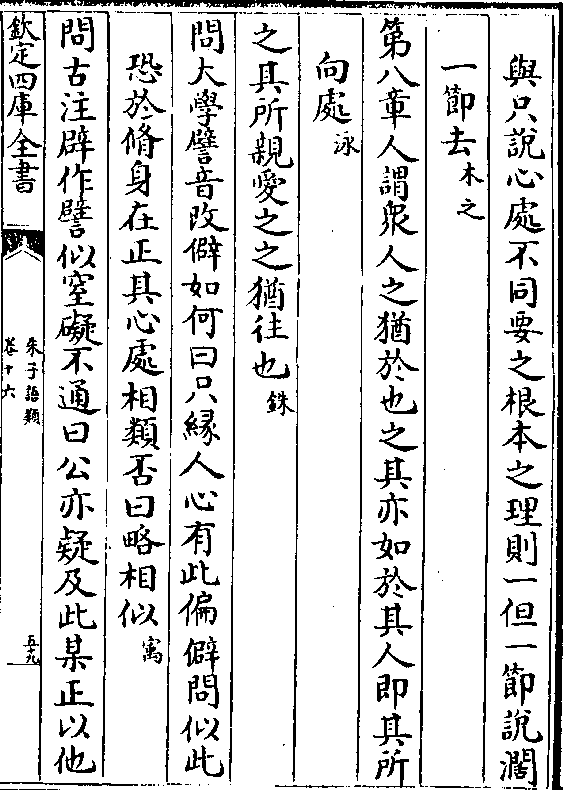 與只說心處不同要之根本之理則一但一節說濶
一節去木之
第八章人謂衆人之猶於也之其亦如於其人即其所
向處泳
之其所親愛之之猶往也銖
問大學譬音改僻如何曰只縁人心有此偏僻問似此
恐於脩身在正其心處相類否曰略相似㝢
問古注辟作譬似窒礙不通曰公亦疑及此某正以他
欽定四庫全書
朱子語類
卷十六
五十九